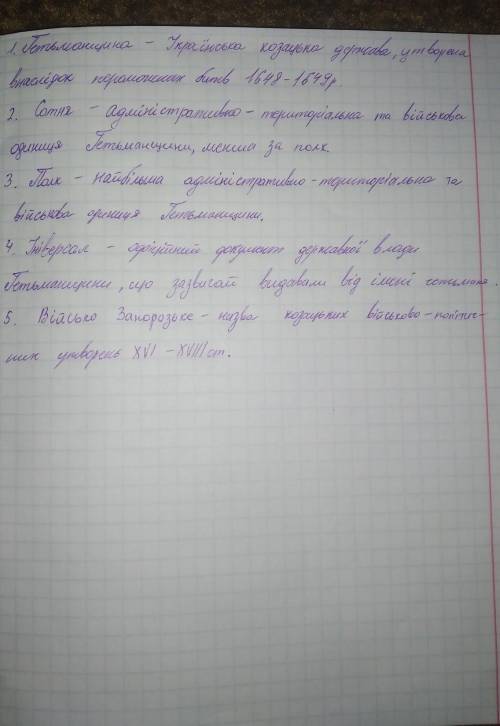 1. Гетьманщина – Українська козацька держава, утворена
внаслідок переможних битв 1648-1649р.
2. Сотня – адміністративно-територіальна та військова
одиниця Гетьманщини, менша за полк.
3. Полк – найбільша адміністративно-територіальна та
військова одиниця Гетьманщини.
4. Універсал – офіційний документ державної влади
Гетьманщини, що зазвичай видавали від імені гетьмана.
5. Військо Запорозьке – назва козацьких військово-політич-
них утворень XVI – XVIII ст.